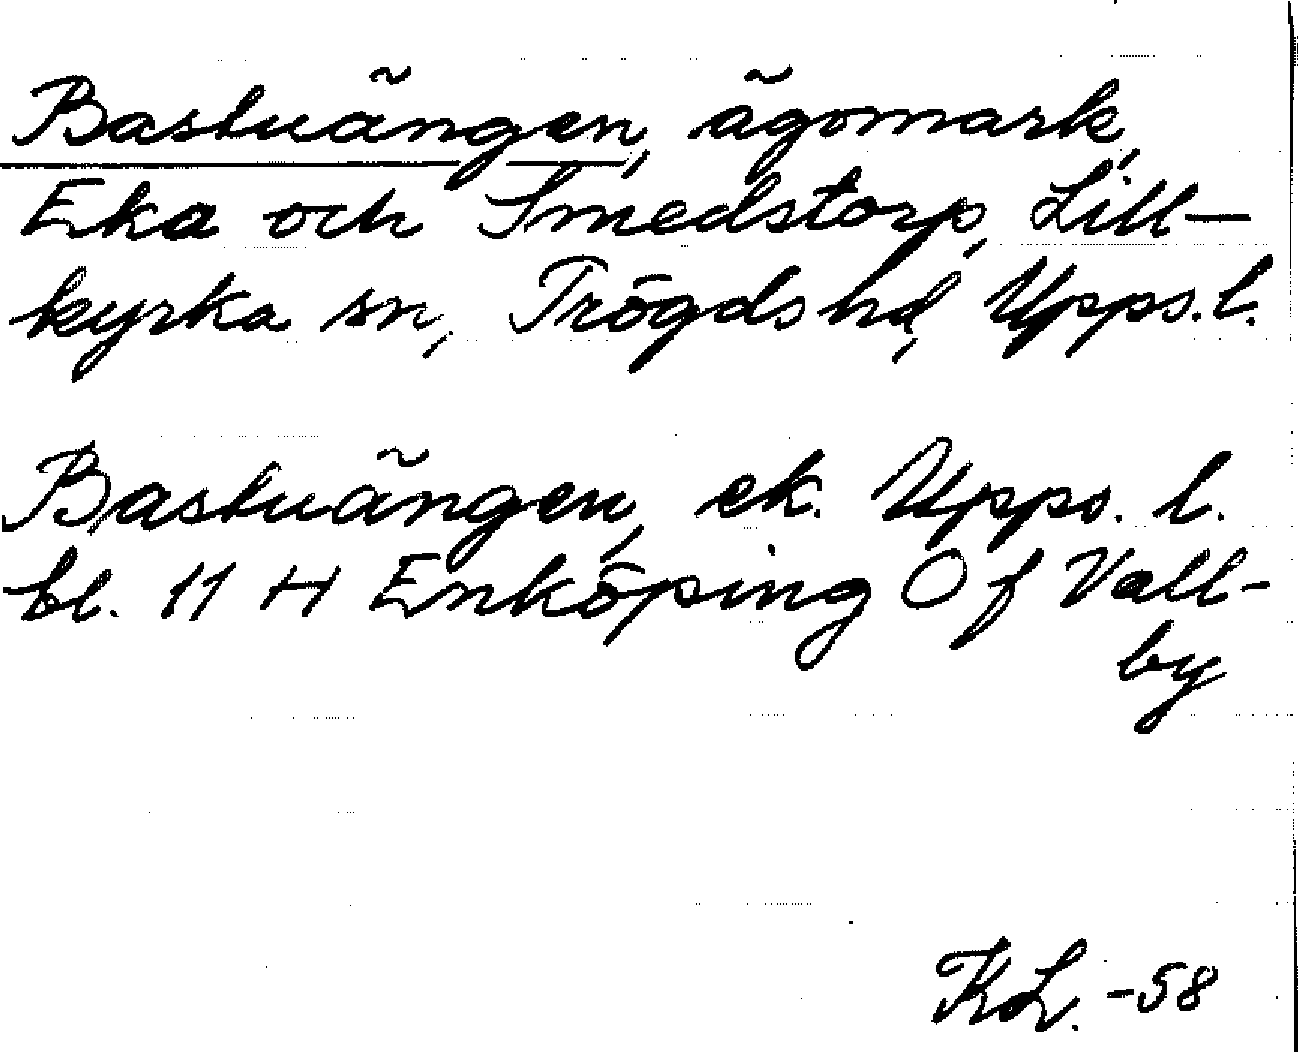 Bastuängen, ägomark,
Eka och Smedstorp, Lill-
kyrka sn, Trögds hd, Upps. l.
Bastuängen, ek. Upps. l.
bl. 11 H Enköping Of Vall-
by
KL. -58